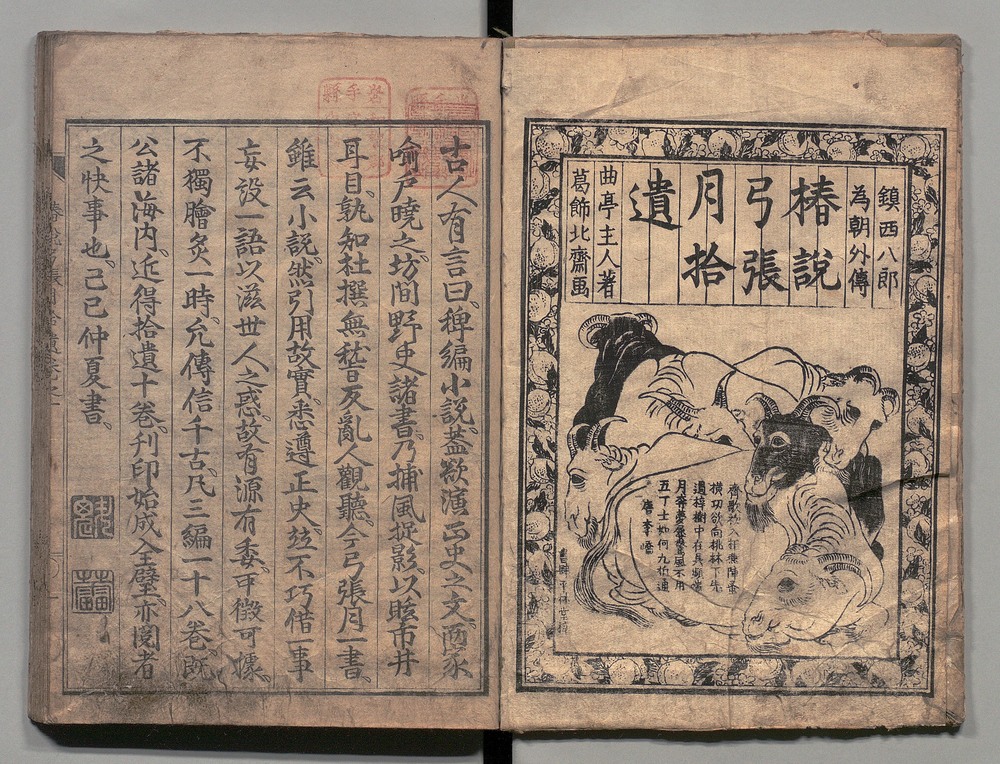 鎮西八郎
為朝外傳
椿說
弓張
月拾
遺
曲亭主人著
葛飾北齋画
月
五丁士如何九折通
唐李嶠
古人有言曰、稗編小說、蓋欲演正史之文、而家
喻戶曉之、坊間野史諸書、乃捕風捉影、以眩市井
耳目、孰知杜撰無稽、百反亂人觀聽、今弓張月一書、
雖云小說、然引用故實、悉遵正史、並不巧借一事
妄設一語、以滋世人之惑、故有源有委、可徵可據、
不獨膾炙一時、允傳信千古、凡三編一十八卷、既
公諸海內、近得拾遺十卷、刊印始成全璧、亦閱者
之快事也、己巳仲夏書、